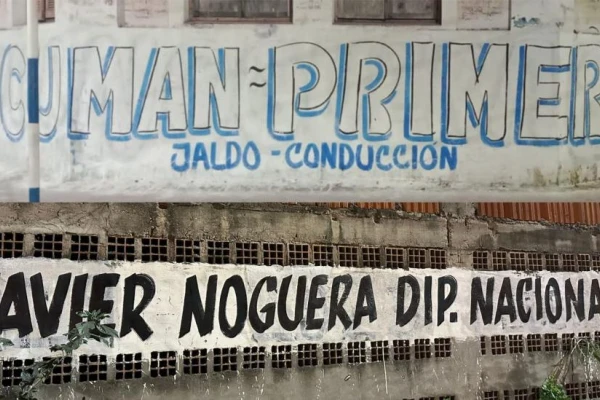 CUMAN - PRIMER
JALDO - CONDUCCIÓN
AVIER NOGUERA DIP. NACIONA